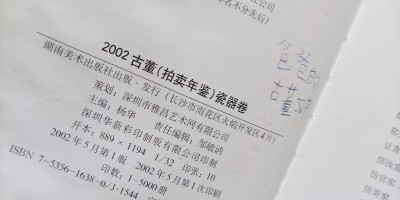 者名不分先后）
2002 古董（拍卖年鉴）瓷器卷
湖南美术出版社出版·发行（长沙市雨花区火焰开发区4片）
策划：深圳市雅昌艺术网有限公司
主编：杨华 责任编辑：邹敏讷
深圳华新彩印制版有限公司印制
开本：889×1194 1/32 印张：10
2002年5月第1版 2002年5月第1次印刷
印数：1-5000册
ISBN 7-5356-1638-0/J·1544
古董